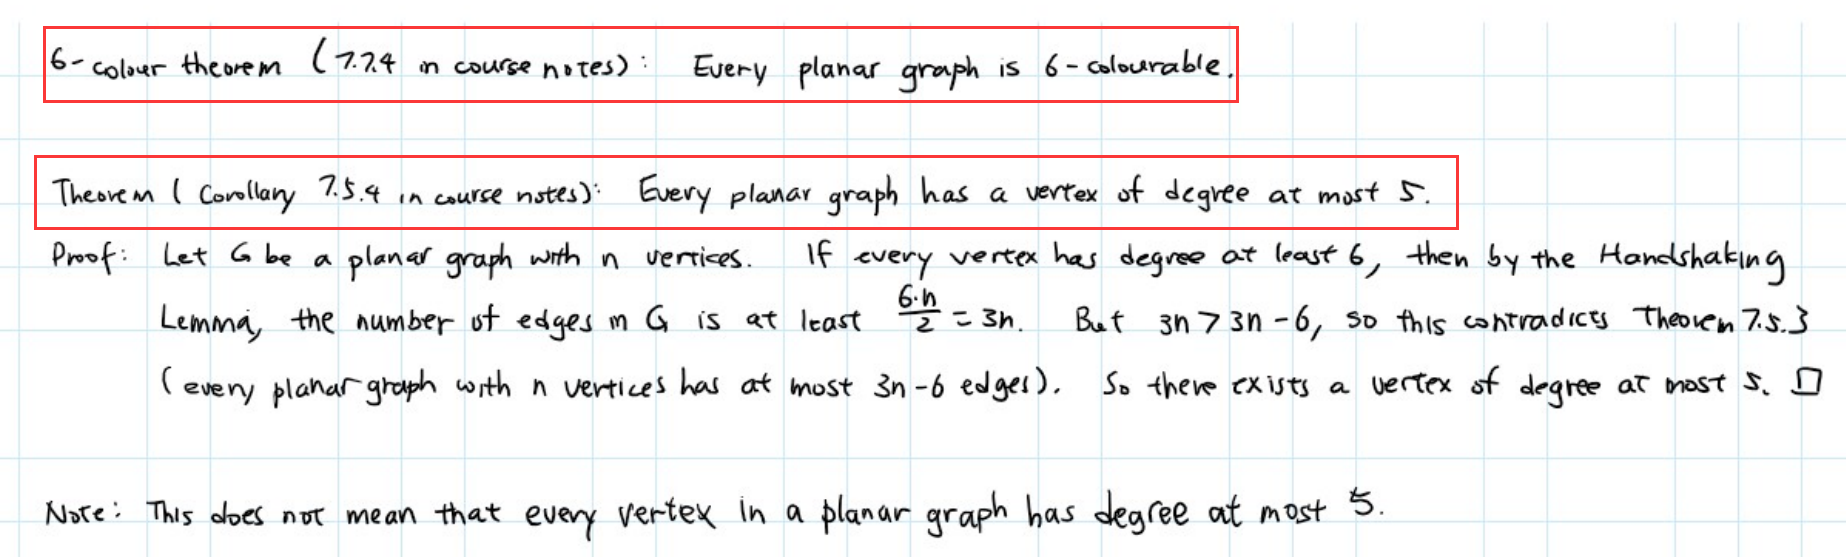 6-colour theorem (7.7.4 in course notes): Every planar graph is 6-colourable.
Theorem (Corollary 7.5.4 in course notes): Every planar graph has a vertex of degree at most 5.
Proof: Let G be a planar graph with n vertices. If every vertex has degree at least 6, then by the Handshaking
Lemma, the number of edges in G is at least 6·n/2 = 3n. But 3n > 3n-6, so this contradicts Theorem 7.5.3
(every planar graph with n vertices has at most 3n-6 edges). So there exists a vertex of degree at most 5. □
Note: This does not mean that every vertex in a planar graph has degree at most 5.